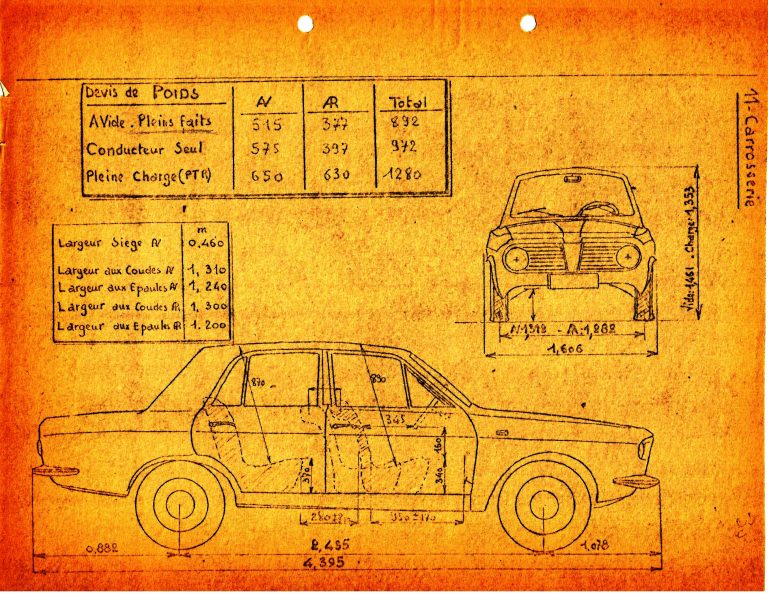 11-Carrosserie
Devis de POIDS AV AR Total
A Vide. Pleins faits 515 377 892
Conducteur Seul 575 397 972
Pleine Charge (PTR) 650 630 1280
m
Largeur Siège AV 0,460
Largeur aux Coudes AV 1,310
Largeur aux Epaules AV 1,240
Largeur aux Coudes AR 1,300
Largeur aux Epaules AR 1.200
Vide: 1,461 - Charge: 1,353
1,606
870
890
345
370
340
160
0,882
2,435
1,078
4,395